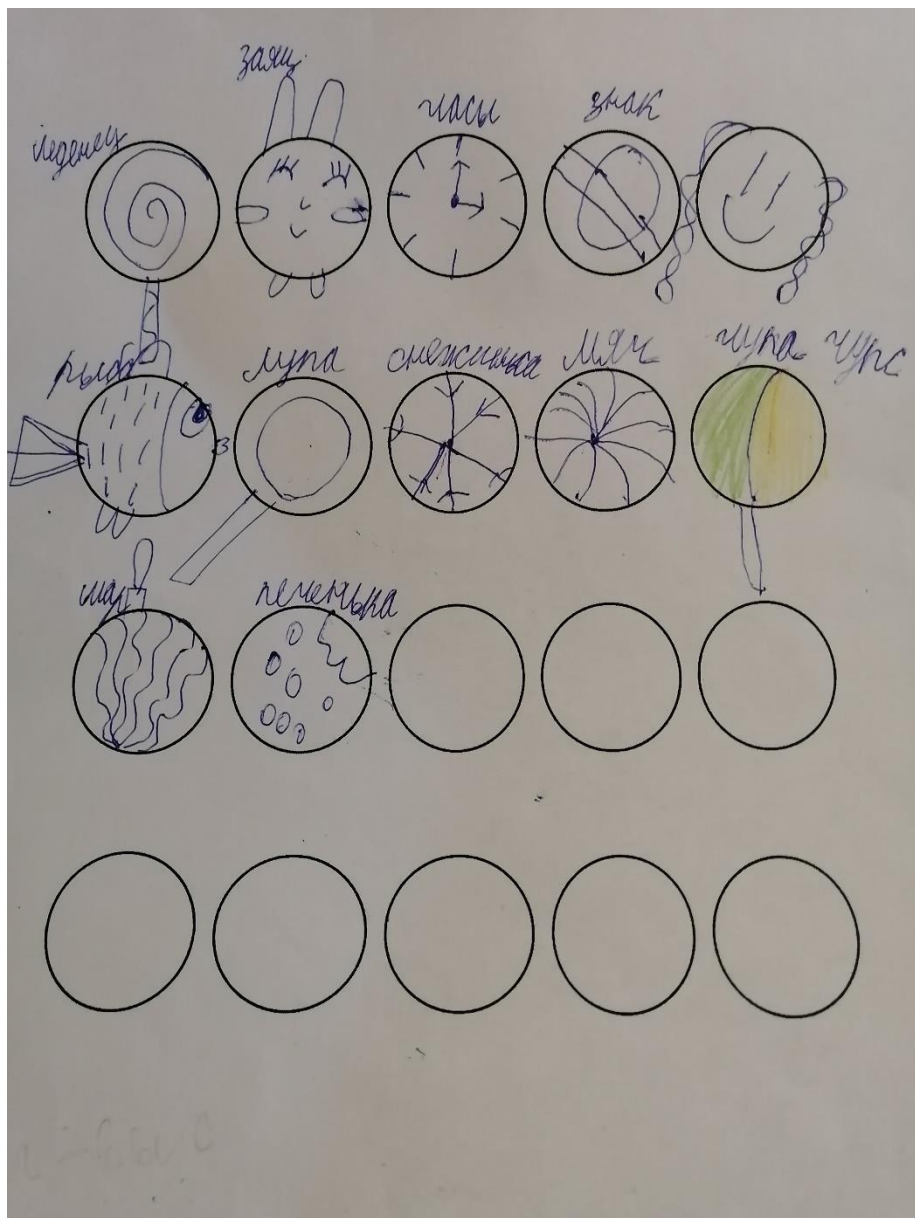 заяц
леденец
часы
знак
рыба
лупа
снежинка
мяч
чупа чупс
шар
печенька